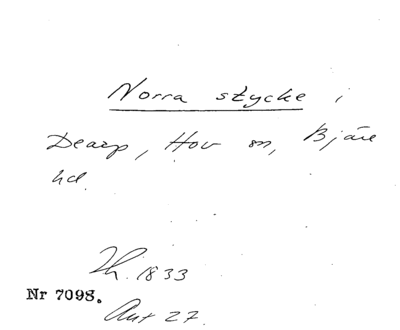 Norra stycke i
Dearp, Hov sn, Bjäre
hd.
Th. 1833
Nr 7098.
Ant 27.